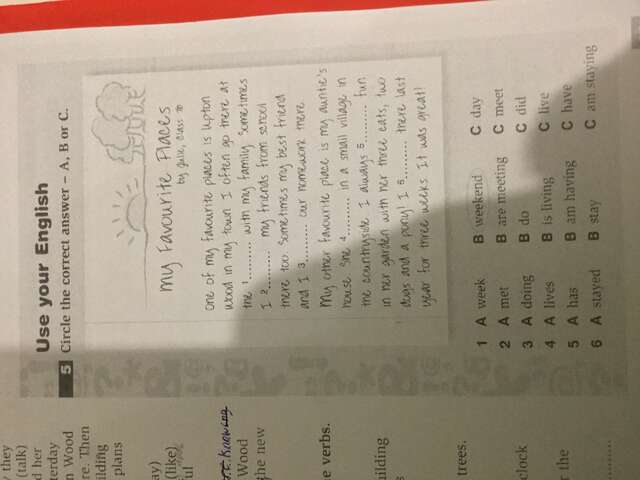 they
(talk)
d her
terday
n Wood
re. Then
ilding
plans
ay)
(like)
ful
Knowing
Wood
the new
e verbs.
uilding
s
trees.
clock
r the
Use your English
5 Circle the correct answer – A, B or C.
My Favourite Places
by Julie, Class 7b
One of my favourite places is Upton
Wood in my town. I often go there at
the 1......... with my family. Sometimes
I 2......... my friends from school
there too. Sometimes my best friend
and I 3......... our homework there.
My other favourite place is my auntie's
house. She 4......... in a small village in
the countryside. I always 5......... fun
in her garden with her three cats, two
dogs and a pony! I 6......... there last
year for three weeks. It was great!
1 A week B weekend C day
2 A met B are meeting C meet
3 A doing B do C did
4 A lives B is living C live
5 A has B am having C have
6 A stayed B stay C am staying